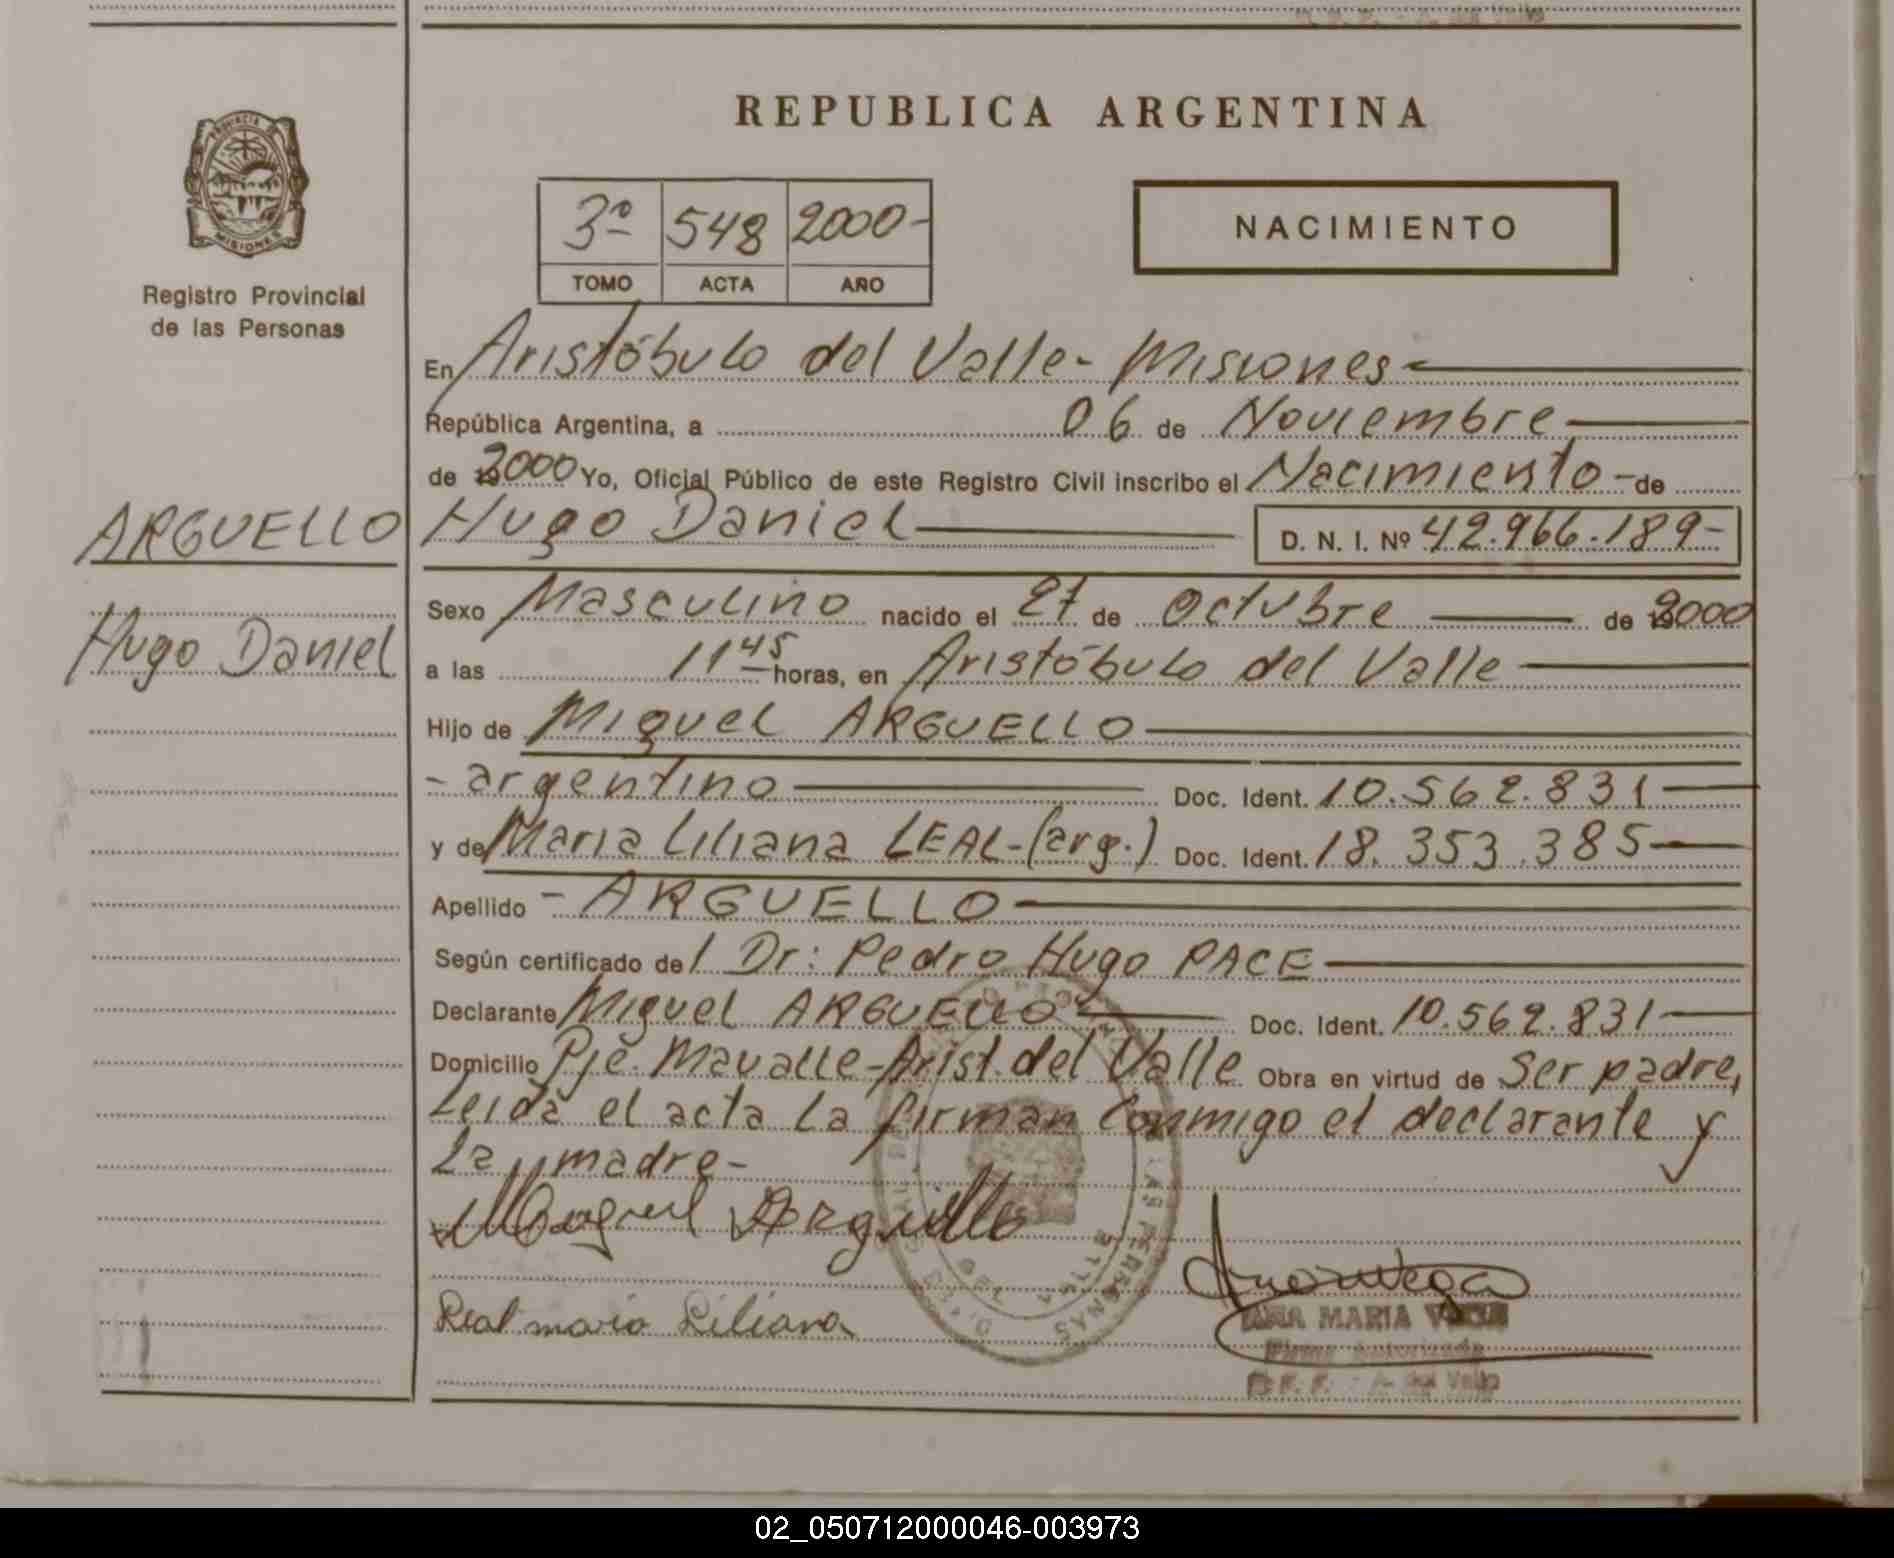 REPUBLICA ARGENTINA
PROVINCIA DE
MISIONES
Registro Provincial
de las Personas
3º 548 2000-
TOMO ACTA AÑO
NACIMIENTO
En Aristóbulo del Valle- Misiones
República Argentina, a 06 de Noviembre
de 2000 Yo, Oficial Público de este Registro Civil inscribo el Nacimiento - de
ARGUELLO Hugo Daniel D. N. I. Nº 42.966.189-
Sexo Masculino nacido el 27 de Octubre de 2000
Hugo Daniel
a las 11 45 horas, en Aristóbulo del Valle
Hijo de Miguel ARGUELLO
- argentino Doc. Ident. 10.562.831
y de Maria Liliana LEAL-(arg.) Doc. Ident. 18.353.385
Apellido - ARGUELLO
Según certificado de l Dr: Pedro Hugo PACE
Declarante Miguel ARGUELLO Doc. Ident. 10.562.831
Domicilio Pje. Mavalle-Arist. del Valle Obra en virtud de Ser padre,
Leida el acta la firman conmigo el declarante y
La madre-
Miguel Arguello
Leal maria Liliana
LAS PERSONAS
DEL VALLE
ANA MARIA
Firma Autorizada
A. del Valle
02_050712000046-003973